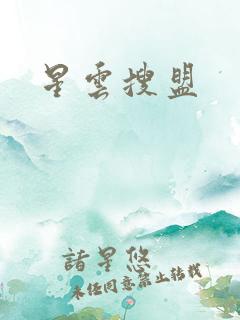 星雲搜盟
諸星悠
未經同意禁止轉載